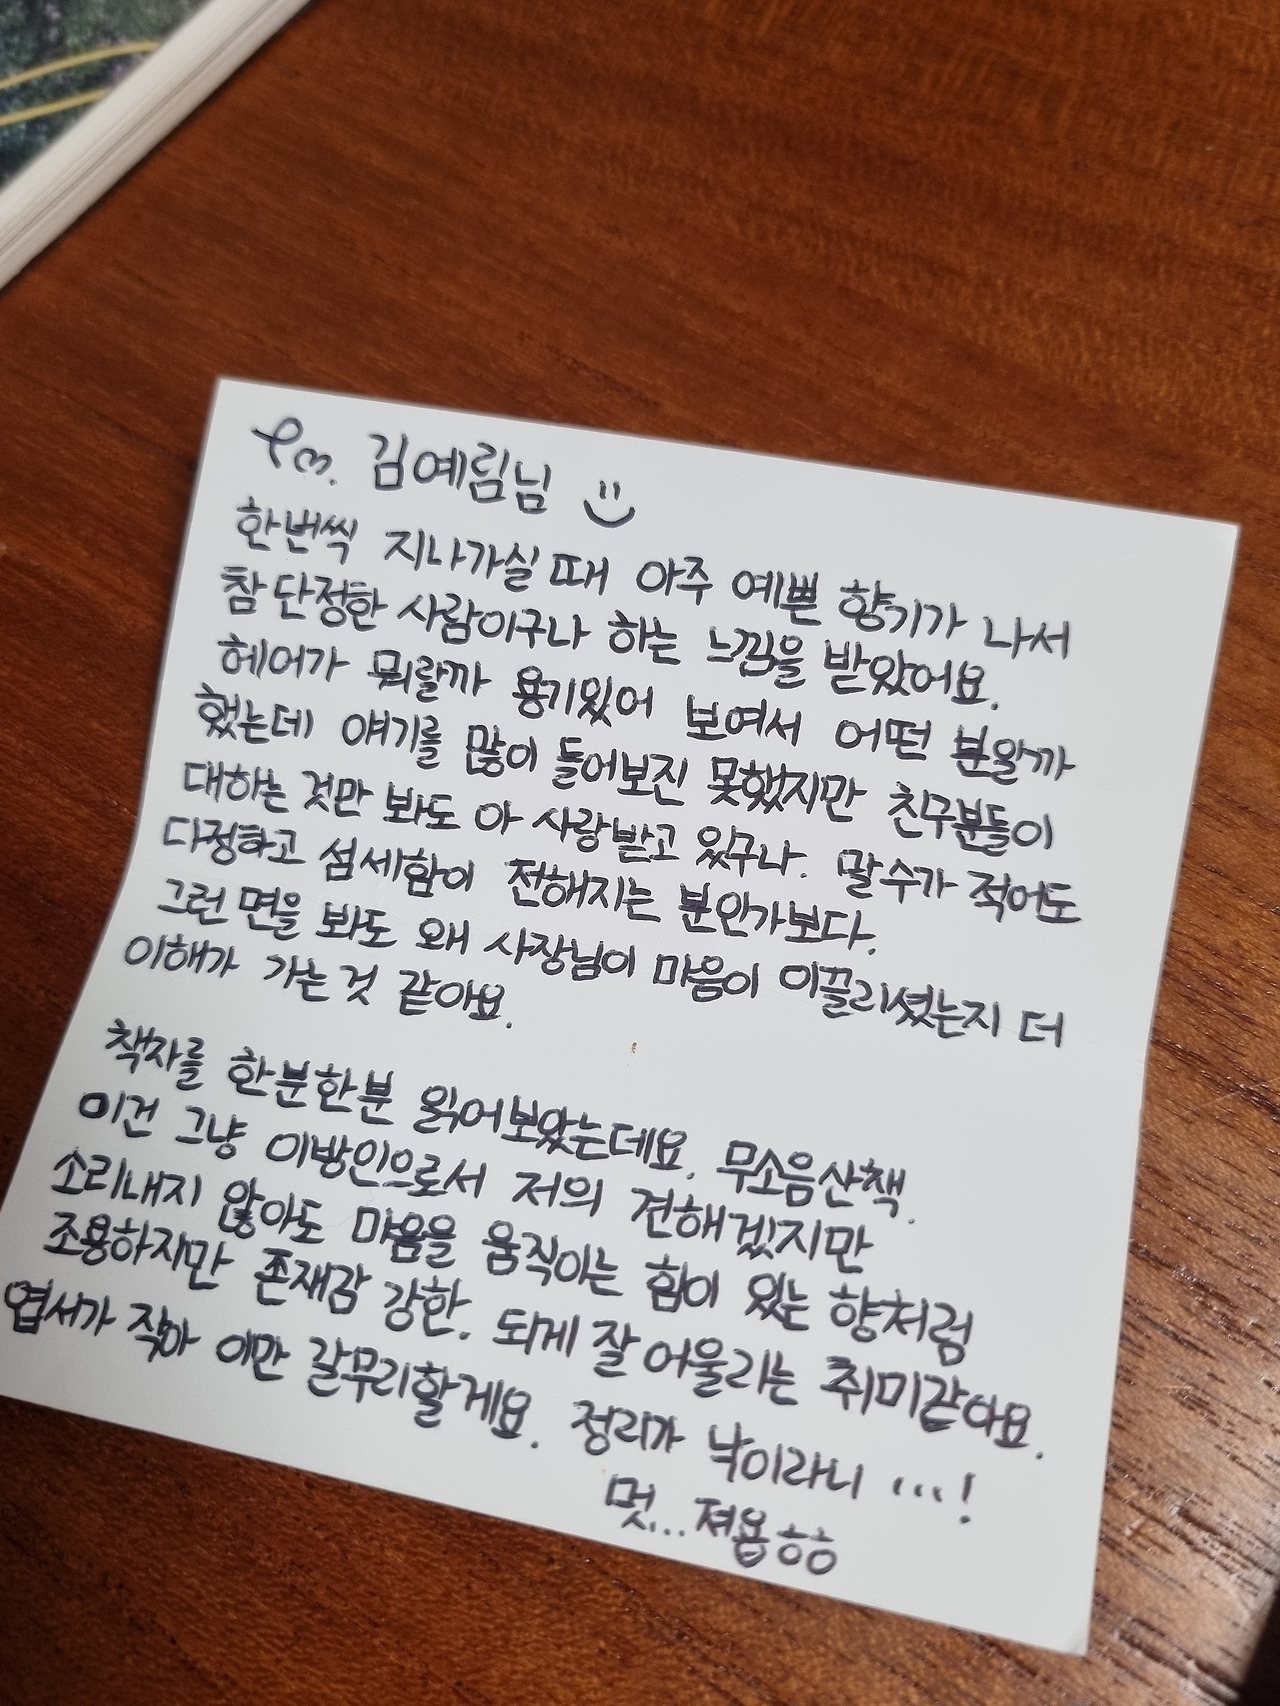 To. 김예림님
한번씩 지나가실 때 아주 예쁜 향기가 나서
참 단정한 사람이구나 하는 느낌을 받았어요.
헤어가 뭐랄까 용기있어 보여서 어떤 분일까
했는데 얘기를 많이 들어보진 못했지만 친구분들이
대하는 것만 봐도 아 사랑받고 있구나. 말수가 적어도
다정하고 섬세함이 전해지는 분인가보다.
그런 면을 봐도 왜 사장님이 마음이 이끌리셨는지 더
이해가 가는 것 같아요.
책자를 한분한분 읽어보았는데요. 무소음산책.
이건 그냥 이방인으로서 저의 견해겠지만
소리내지 않아도 마음을 움직이는 힘이 있는 향처럼
조용하지만 존재감 강한. 되게 잘 어울리는 취미같아요.
엽서가 작아 이만 갈무리할게요. 정리가 낙이라니 ...!
멋... 져욥ㅎㅎ